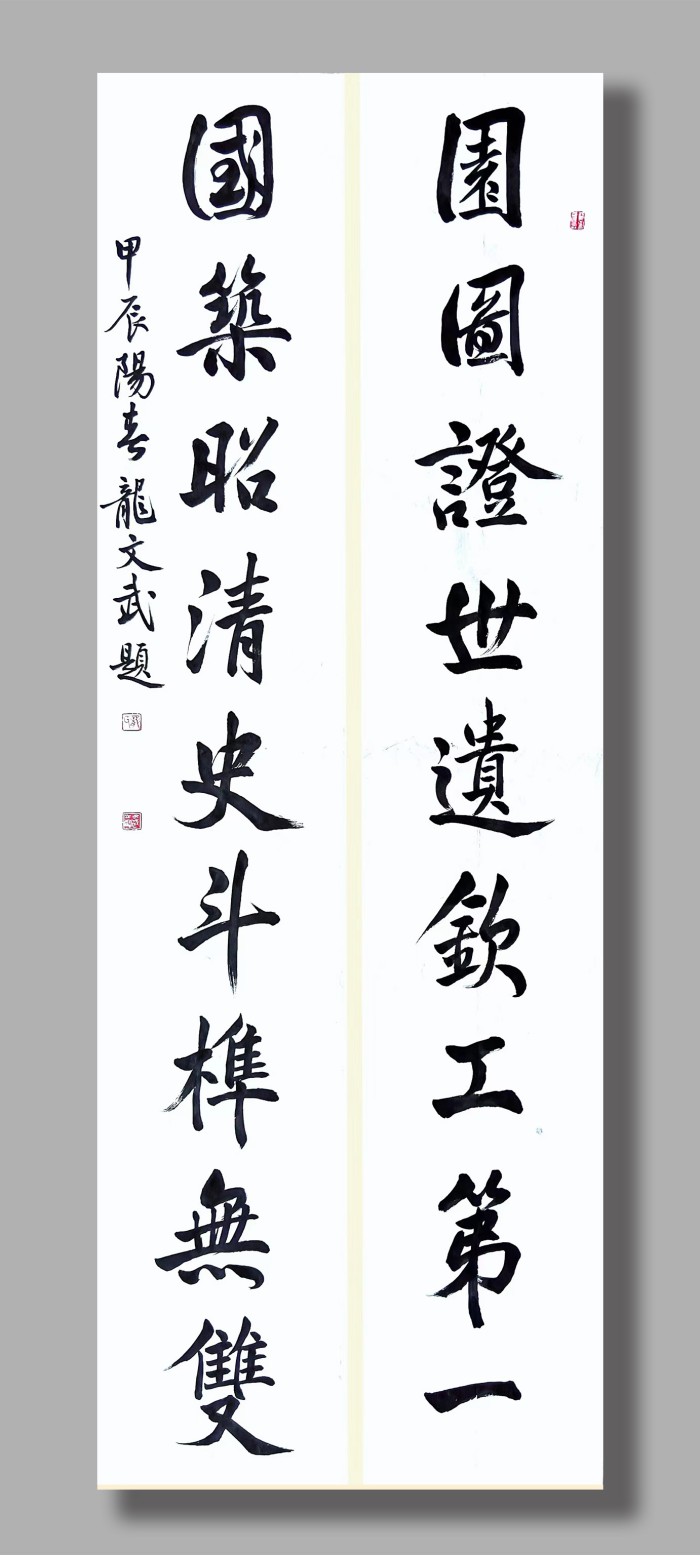 園圖證世遺欽工第一
國築昭清史斗榫無雙
甲辰陽春龍文武題